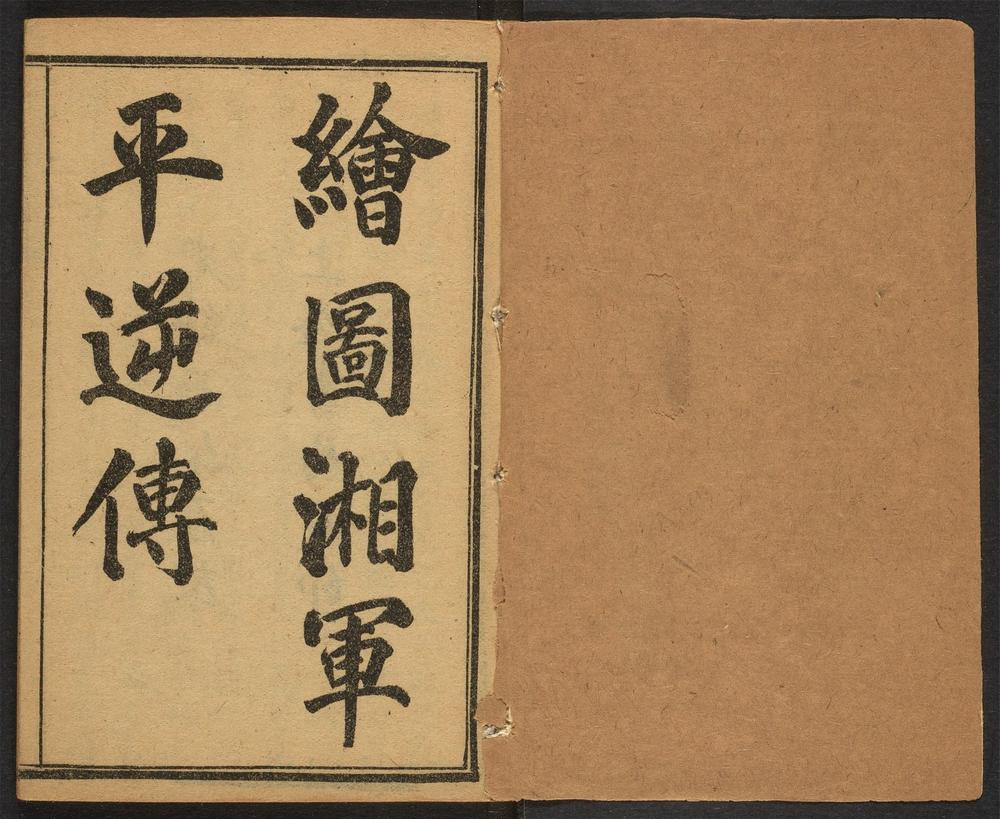 繪圖湘軍
平逆傳